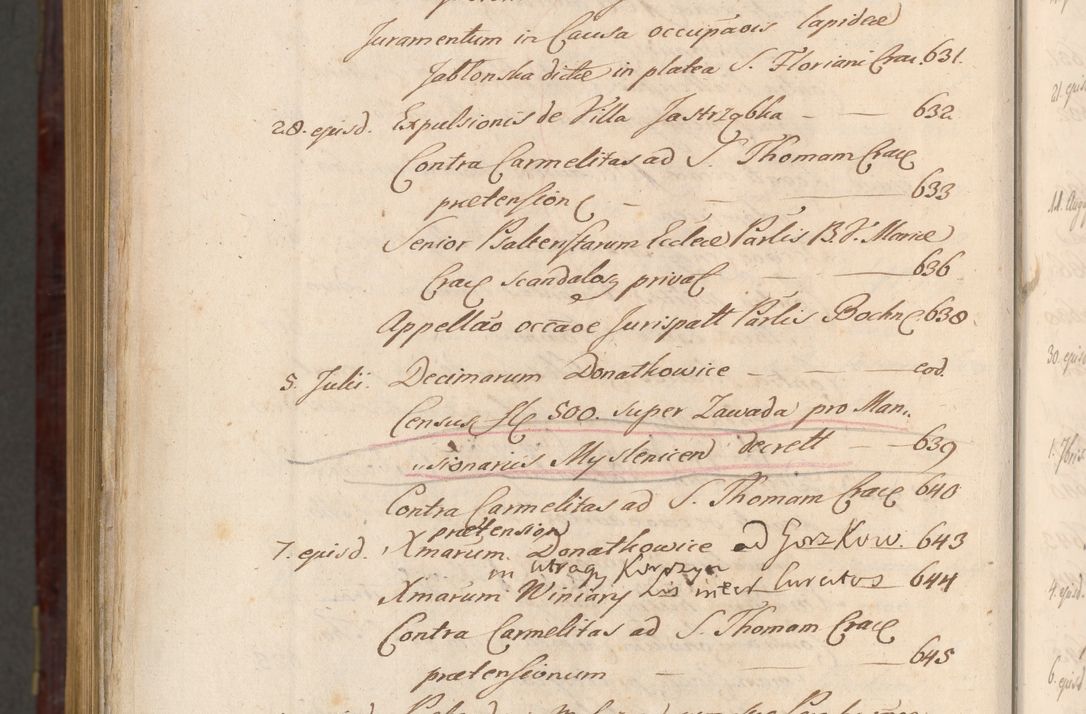 Juramentum in Causa occupãois lapideæ
Jabłonska dictæ in platea S. Floriani Crac. 631.
28. ejusd. Expulsionis de Villa Jastrząbka - — 632
Contra Carmelitas ad S. Thomam Crac
prætension - - - — 633
Senior Psalteristarum Eccleæ Parlis B.V. Mariæ
Crac scandalos privat - — 636
Appellão occãoe Jurispatt Parlis Bochn 638.
5. Julii. Decimarum Donatkowice - - — eod.
Census fl 500. super Zawada pro Man-
sionariis Myslenicen decrett — 639
Contra Carmelitas ad S. Thomam Crac 640
prætension
7. ejusd. Xmarum Donatkowice ad Gorzkow. 643
in utraq Korzyn
Xmarum Winiary 644
Contra Carmelitas ad S. Thomam Crac
prætensionum - — — 645